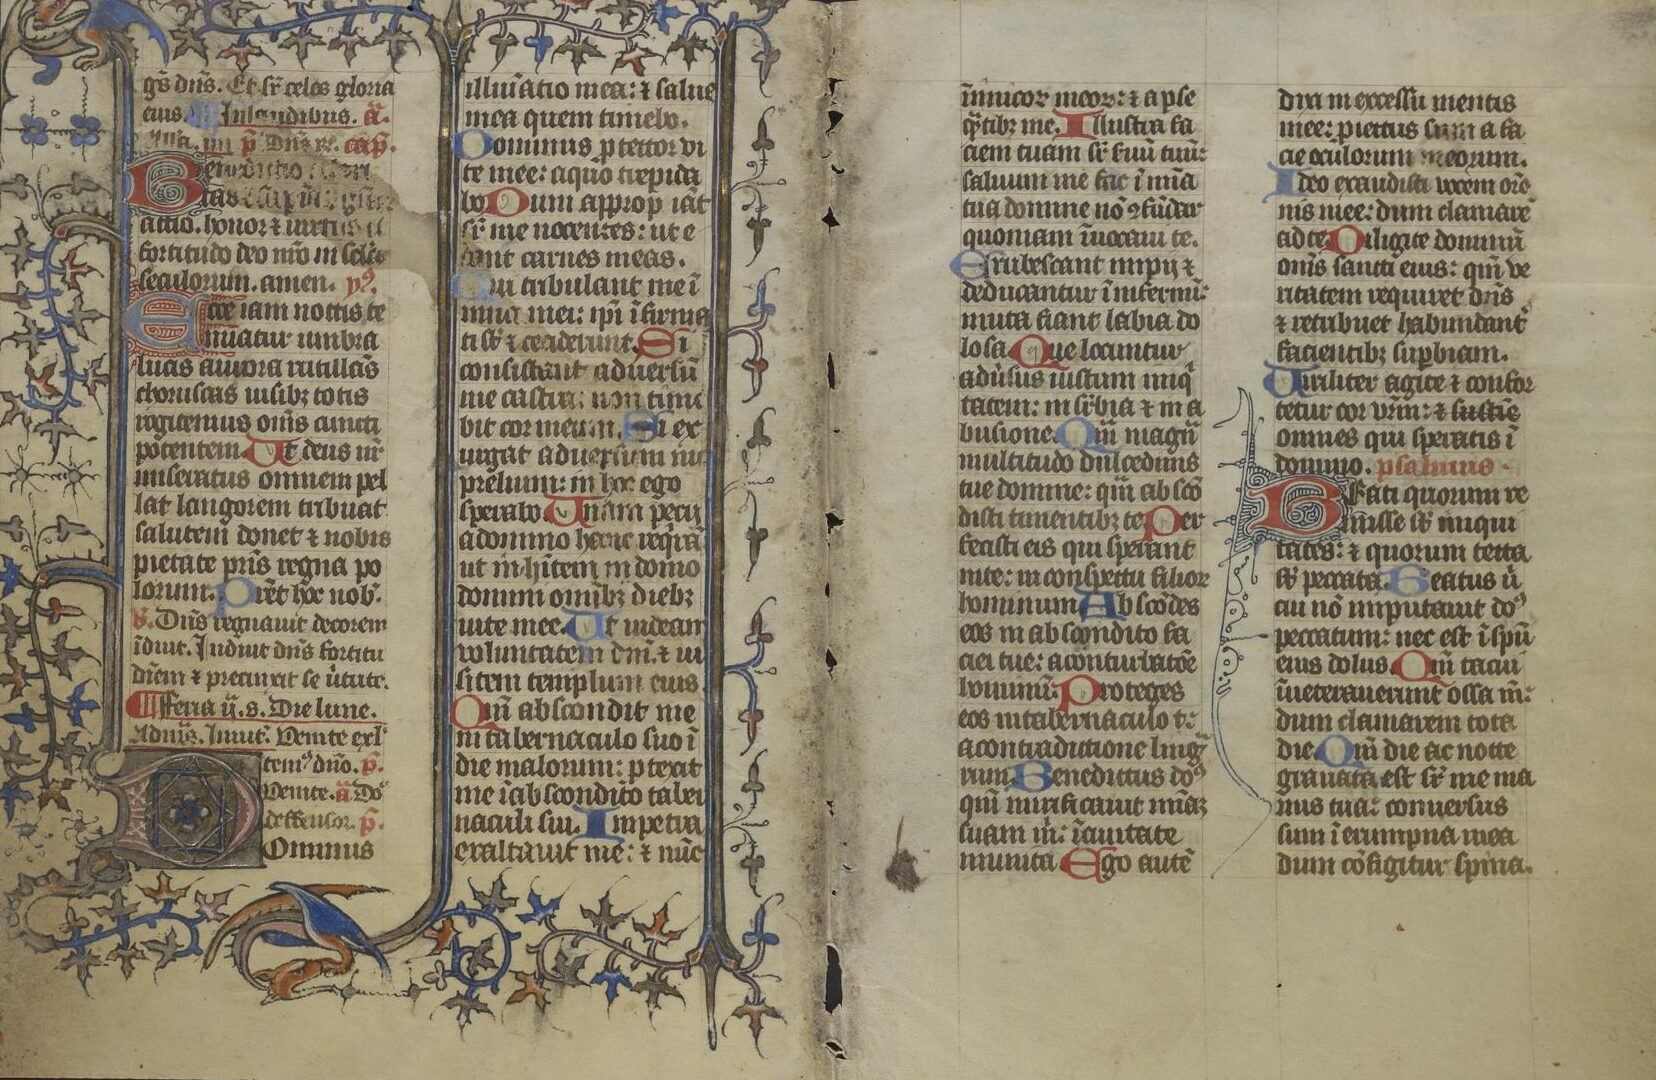 gꝰ dn̄s. Et sr̄ celos gloria
eius. ¶ In laudibus. a̅.
p̄ Dn̄s re. cap̄.
Benedictio
attio. honor ⁊ virtus
fortitudo deo nr̄o in sc̄la
seculorum. amen. yꝰ.
Ecce iam noctis te
nuatur umbra
lucis aurora rutillās
choruscas nisibꝫ totis
rogitemus om̄s cuncti
potentem. Ut deus nr̄
miseratus omnem pel
lat langorem tribuat
salutem donet ⁊ nobis
pietate prīs regna po
lorum. Prēt hoc nob̄.
v̄. Dn̄s regnauit decorem
īduit. Induit dn̄s fortitu
dīem ⁊ precinxit se v̄tute.
¶ fferia ij. s. Die lune.
Ad mꝰ. Inuit. Venite exl̄
temꝰ dn̄o. p̄.
Venite. a̅ Dꝰ
deffensor. p̄.
Ominus
illuīatio mea: ⁊ salus
mea quem timebo.
Dominus ꝓtector vi
te mee: a quo trepida
bo Dum approp iāt
sr̄ me nocentes: ut e
dant carnes meas.
Qui tribulant me ī
imici mei: ip̄i īfirma
ti sūt ⁊ ceciderunt. Si
consistant aduersū
me castra: non time
bit cor meum. Si ex
urgat aduersum me
prelium: in hoc ego
sperabo. Unam pecij
a domino hanc reqrā
ut inhītem in domo
domini omībꝫ diebꝫ
uite mee. Ut uideam
voluntatem dn̄i. ⁊ ui
sitem templum eius.
Qm̄ abscondit me
in tabernaculo suo ī
die malorum: ꝓtexit
me ī abscondito taber
naculi sui. In petra
exaltauit me: ⁊ nūc
īnimicoꝝ meoꝝ: ⁊ a ꝑse
qn̄tibꝫ me. Illustra fa
ciem tuam sr̄ ẜuū tuū:
saluum me fac ī mīa
tua domine nō ꝯfūdar
quoniam īuocaui te.
Erubescant impij ⁊
deducantur ī infernū:
muta fiant labia do
losa. Que locuntur
adūsus iustum iniq̄
tatem: in suꝑbia ⁊ in a
busione. Qm̄ magna
multitudo dulcedinis
tue domine: qm̄ absco
disti timentibꝫ te. Per
fecisti eis qui sperant
in te: in conspectu filioꝝ
hominum Abscōdes
eos in abscondito fa
ciei tue: a conturbatōe
hominū. Proteges
eos in tabernaculo t:
a contradictione lingᷓ
rum. Benedictus doꝰ
qm̄ mirificauit mīaꝫ
suam m: ī ciuitate
munita Ego autē
dixi in excessu mentis
mee: proiectus sum a fa
cie oculorum meorum.
Ideo exaudisti vocem orō
nis mee: dum clamarē
ad te. Diligite dominū
om̄s sancti eius: qm̄ ve
ritatem requiret dn̄s
⁊ retribuet habundant̄
facientibꝫ suꝑbiam.
Uiriliter agite ⁊ confor
tetur cor vr̄m: ⁊ sustiē
omnes qui speratis ī
domino. psalmus.
Beati quorum re
misse sūt iniqui
tates: ⁊ quorum tecta
sūt peccata. Beatus ū
cui nō imputauit doꝰ
peccatum: nec est ī spū
eius dolus. Qm̄ tacui
īueterauerunt ossa m:
dum clamarem tota
die. Qm̄ die ac nocte
grauata est sr̄ me ma
nus tua: conuersus
sum ī erumpna mea
dum cōfigitur spina.